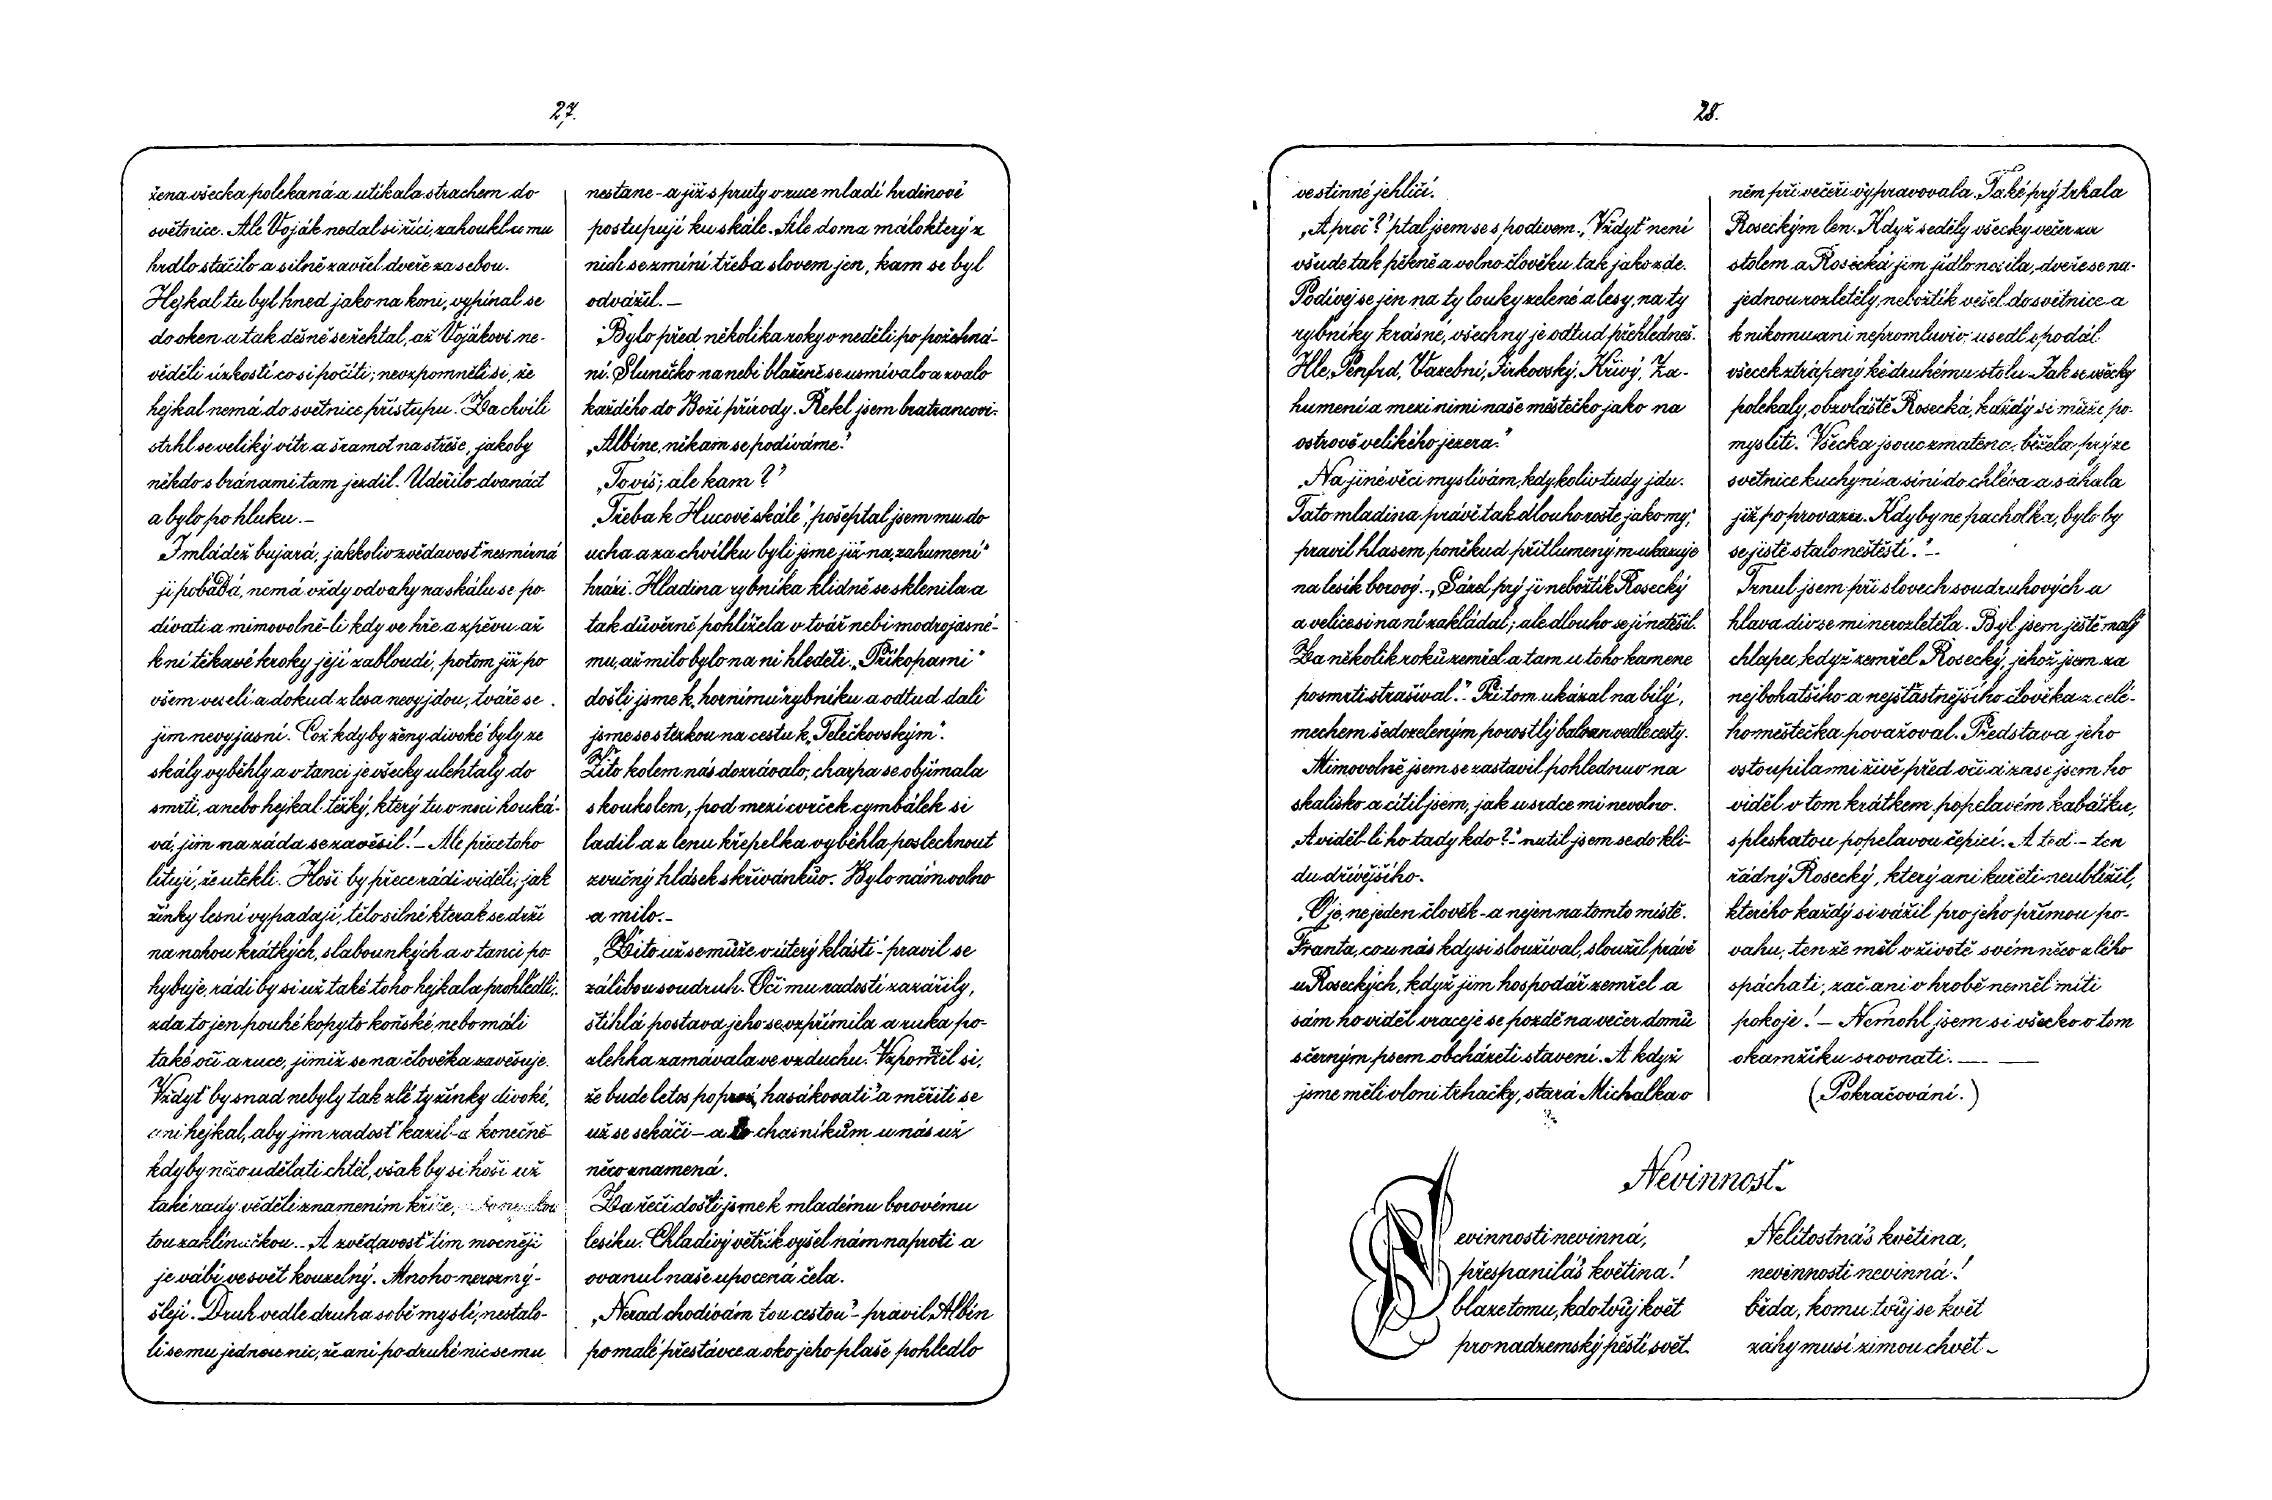 27.
žena všecka polekaná a utíkala strachem do
světnice. Ale Voják nedal si říci, zahoukl a mu
hrdlo stačilo a silně zavřel dveře za sebou.
Hejkal tu byl hned jako na koni, vypínal se
do oken a tak děsně se řehtal, až Vojákovi ne-
věděli úzkostí co si počíti; nevzpomněli si, že
hejkal nemá do světnice přístupu. Za chvíli
strhl se veliký vítr a šramot na střeše, jakoby
někdo s bránami tam jezdil. Udeřilo dvanáct
a bylo po hluku. –
I mládež bujará, jakkoliv zvědavosť nesmírná
ji pobádá, nemá vždy odvahy na skálu se po-
dívati a mimovolně-li kdy ve hře a zpěvu až
k ní těkavé kroky její zabloudí, potom již po
všem veselí a dokud z lesa nevyjdou, tváře se
jim nevyjasní. Což kdyby ženy divoké byly ze
skály vyběhly a v tanci je všecky ulehtaly do
smrti, anebo hejkal těžký, který tu v noci houká-
vá, jim na záda se zavěsil! – Ale přece toho
litují, že utekli. Hoši by přece rádi viděli, jak
žínky lesní vypadají, tělo silné kterak se drží
na nohou krátkých, slabounkých a v tanci po-
hybuje, rádi by si už také toho hejkala prohlédli,
zda to jen pouhé kopyto koňské, nebo má-li
také oči a ruce, jimiž se na člověka zavěšuje.
Vždyť by snad nebyly tak zlé ty žínky divoké,
ani hejkal, aby jim radosť kazil – a konečně
kdyby něco udělati chtěl, však by si hoši už
také rady věděli znamením kříže,
tou zaklínačkou. – A zvědavosť tím mocněji
je vábí ve svět kouzelný. Mnoho nerozmý-
šlejí. Druh vedle druha sobě myslí, nestalo-
li se mu jednou nic, že ani po druhé nic se mu
nestane – a již s pruty v ruce mladí hrdinové
postupují ku skále. Ale doma málokterý z
nich se zmíní třeba slovem jen, kam se byl
odvážil. –
Bylo před několika roky v neděli po požehná-
ní. Slunéčko na nebi blaženě se usmívalo a zvalo
každého do Boží přírody. Řekl jsem bratrancovi:
„Albíne, někam se podíváme."
„To víš, ale kam?"
„Třeba k Hucově skále", pošeptal jsem mu do
ucha a za chvilku byli jsme již na „zahumení"
hrázi. Hladina rybníka klidně se sklenila a
tak důvěrně pohlížela v tvář nebi modrojasné-
mu, až milo bylo na ni hleděti. „Příkopami"
došli jsme k „hornímu" rybníku a odtud dali
jsme se stezkou na cestu k „Telečkovským".
Žito kolem nás dozrávalo, charpa se objímala
s koukolem, pod mezí cvrček cymbálek si
ladil a z lenu křepelka vyběhla poslechnout
zvučný hlásek skřivánkův. Bylo nám volno
a milo. –
„Žito už se může v úterý klásti" – pravil se
zálibou soudruh. Oči mu radostí zazářily,
štíhlá postava jeho se vzpřímila a ruka po-
zlehka zamávala ve vzduchu. Vzpomněl si,
že bude letos poprvé „hasákovati" a měřiti se
už se sekáči – a to chasníkům u nás už
něco znamená.
Za řečí došli jsme k mladému borovému
lesíku. Chladivý větřík vyšel nám naproti a
ovanul naše upocená čela.
„Nerad chodívám tou cestou" – pravil Albín
po malé přestávce a oko jeho plaše pohledlo
28.
ve stinné jehličí.
„A proč?" ptal jsem se s podivem. „Vždyť není
všude tak pěkně a volno člověku tak jako zde.
Podívej se jen na ty louky zelené a lesy, na ty
rybníky krásné, všechny je odtud přehledneš.
Hle, Penfrd, Vazební, Jírkovský, Křivý, Za-
humení a mezi nimi naše městečko jako na
ostrově velikého jezera."
„Na jiné věci myslívám, kdykoliv tudy jdu.
Tato mladina právě tak dlouho roste jako my,"
pravil hlasem poněkud přitlumeným ukazuje
na lesík borový. „Sázel prý ji nebožtík Rosecký
a velice si na ní zakládal; ale dlouho se jí netěšil.
Za několik roků zemřel a tam u toho kamene
po smrti strašíval." – Při tom ukázal na bílý,
mechem šedozeleným porostlý balvan vedle cesty.
Mimovolně jsem se zastavil pohlednuv na
skalisko a cítil jsem, jak u srdce mi nevolno.
„A viděl-li ho tady kdo?" – nutil jsem se do kli-
du dřívějšího.
„Oje, nejeden člověk – a nejen na tomto místě.
Franta, co u nás kdysi sloužíval, sloužil právě
u Roseckých, když jim hospodář zemřel a
sám ho viděl vraceje se pozdě na večer domů
s černým psem obcházeti stavení. A když
jsme měli vloni trhačky, stará Michalka o
něm při večeři vypravovala. Také prý trhala
Roseckým len. Když seděly všecky večer za
stolem a Rosecká jim jídlo nosila, dveře se na-
jednou rozletěly, nebožtík vešel do světnice a
k nikomu ani nepromluviv, usedl opodál
všecek ztrápený ke druhému stolu. Jak se všecky
polekaly, obzvláště Rosecká, každý si může po-
mysliti. Všecka jsouc zmatena, běžela prý ze
světnice kuchyní a síní do chléva a sáhala
již po provazu. Kdyby ne pacholka, bylo by
se jistě stalo neštěstí." –
Trnul jsem při slovech soudruhových a
hlava div se mi nerozletěla. Byl jsem ještě malý
chlapec, když zemřel Rosecký, jehož jsem za
nejbohatšího a nejšťastnějšího člověka z celé-
ho městečka považoval. Představa jeho
vstoupila mi živě před oči a zase jsem ho
viděl v tom krátkém, popelavém kabátku,
s pleskatou popelavou čepicí. A teď – ten
řádný Rosecký, který ani kuřeti neublížil,
kterého každý si vážil pro jeho přímou po-
vahu, ten že měl v životě svém něco zlého
spáchati, zač ani v hrobě neměl míti
pokoje! – Nemohl jsem si všecko v tom
okamžiku srovnati. — —
(Pokračování.)
Nevinnosť.
Nevinnosti nevinná,
přespanilás květina!
blaze tomu, kdo tvůj květ
pro nadzemský pěstí svět.
Nelítostnás květina,
nevinnosti nevinná!
běda, komu tvůj se květ
záhy musí zimou chvět –